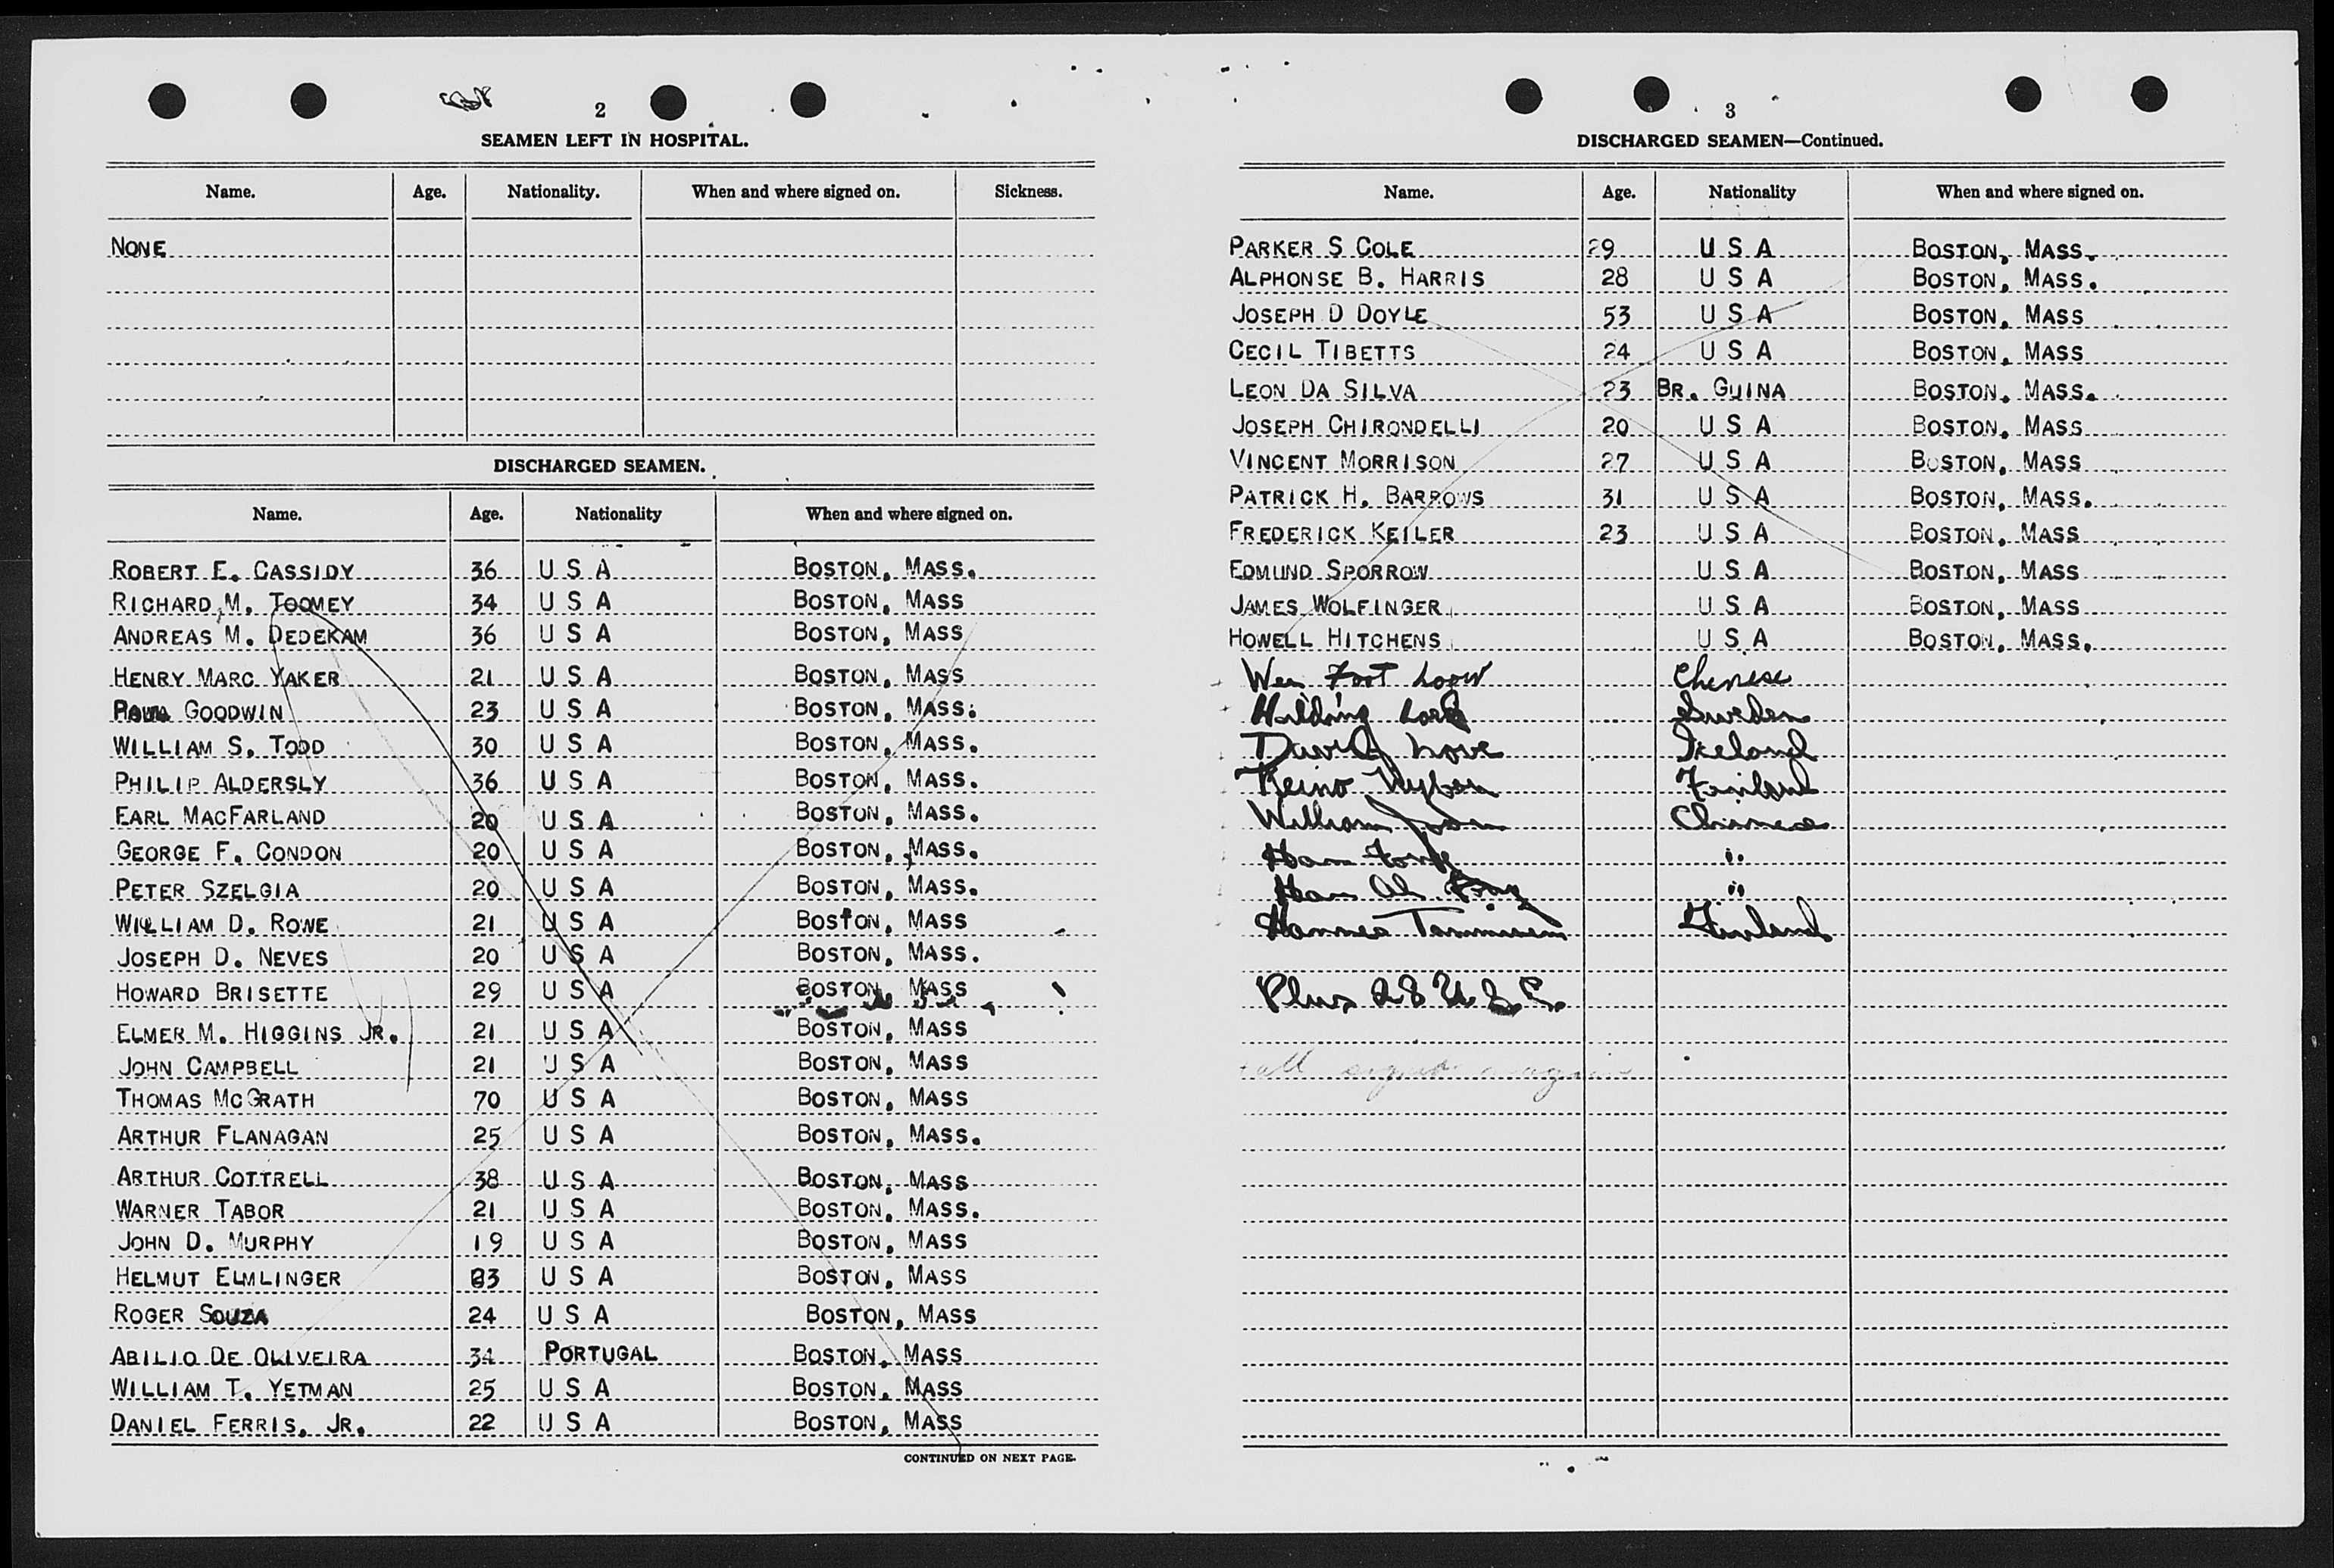 2
SEAMEN LEFT IN HOSPITAL.
Name. Age. Nationality. When and where signed on. Sickness.
NONE
DISCHARGED SEAMEN.
Name. Age. Nationality When and where signed on.
ROBERT E. CASSIDY 36 U S A BOSTON, MASS.
RICHARD M. TOOMEY 34 U S A BOSTON, MASS
ANDREAS M. DEDEKAM 36 U S A BOSTON, MASS
HENRY MARC YAKER 21 U S A BOSTON, MASS
GOODWIN 23 U S A BOSTON, MASS.
WILLIAM S. TODD 30 U S A BOSTON, MASS.
PHILIP ALDERSLY 36 U S A BOSTON, MASS.
EARL MACFARLAND 20 U S A BOSTON, MASS.
GEORGE F. CONDON 20 U S A BOSTON, MASS.
PETER SZELGIA 20 U S A BOSTON, MASS.
WILLIAM D. ROWE 21 U S A BOSTON, MASS
JOSEPH D. NEVES 20 U S A BOSTON, MASS.
HOWARD BRISETTE 29 U S A BOSTON, MASS
ELMER M. HIGGINS JR. 21 U S A BOSTON, MASS
JOHN CAMPBELL 21 U S A BOSTON, MASS
THOMAS MCGRATH 70 U S A BOSTON, MASS
ARTHUR FLANAGAN 25 U S A BOSTON, MASS.
ARTHUR COTTRELL 38 U S A BOSTON, MASS
WARNER TABOR 21 U S A BOSTON, MASS.
JOHN D. MURPHY 19 U S A BOSTON, MASS
HELMUT ELMLINGER 23 U S A BOSTON, MASS
ROGER SOUZA 24 U S A BOSTON, MASS
ABILIO DE OLIVEIRA 34 PORTUGAL BOSTON, MASS
WILLIAM T. YETMAN 25 U S A BOSTON, MASS
DANIEL FERRIS, JR. 22 U S A BOSTON, MASS
CONTINUED ON NEXT PAGE.
3
DISCHARGED SEAMEN—Continued.
Name. Age. Nationality When and where signed on.
PARKER S COLE 29 U S A BOSTON, MASS.
ALPHONSE B. HARRIS 28 U S A BOSTON, MASS.
JOSEPH D DOYLE 53 U S A BOSTON, MASS
CECIL TIBETTS 24 U S A BOSTON, MASS
LEON DA SILVA 23 BR. GUINA BOSTON, MASS.
JOSEPH CHIRONDELLI 20 U S A BOSTON, MASS
VINCENT MORRISON 27 U S A BOSTON, MASS
PATRICK H. BARROWS 31 U S A BOSTON, MASS.
FREDERICK KEILER 23 U S A BOSTON, MASS
EDMUND SPORROW U S A BOSTON, MASS
JAMES WOLFINGER U S A BOSTON, MASS
HOWELL HITCHENS U S A BOSTON, MASS.
Wee Foot Chinese
Hilding Sweden
David Love
Reino Finland
William Chinese
Ham Fong "
Ham Ah "
Hannes Tamminen Finland
Plus 28 U.S.C.
all again